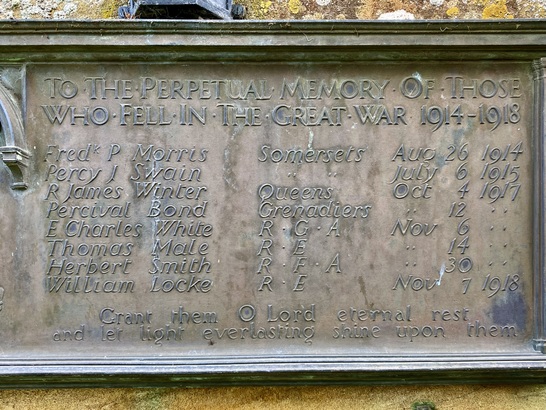 TO THE · PERPETUAL · MEMORY · OF · THOSE
WHO · FELL · IN · THE · GREAT · WAR 1914-1918
Fredk P Morris Somersets Aug 26 1914
Percy J Swain " " July 6 1915
R James Winter Queens Oct 4 1917
Percival Bond Grenadiers " 12 "
E Charles White R · G · A Nov 6 "
Thomas Male R · E " 14 "
Herbert Smith R · F · A " 30 "
William Locke R · E Nov 7 1918
Grant them O Lord eternal rest
and let light everlasting shine upon them